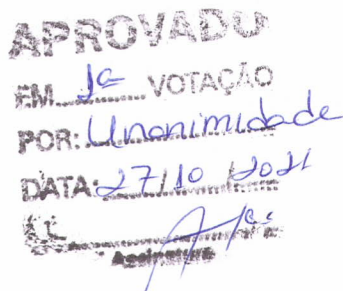 APROVADO
EM 1ª VOTAÇÃO
POR: Unanimidade
DATA: 27/10/2021
Assinatura